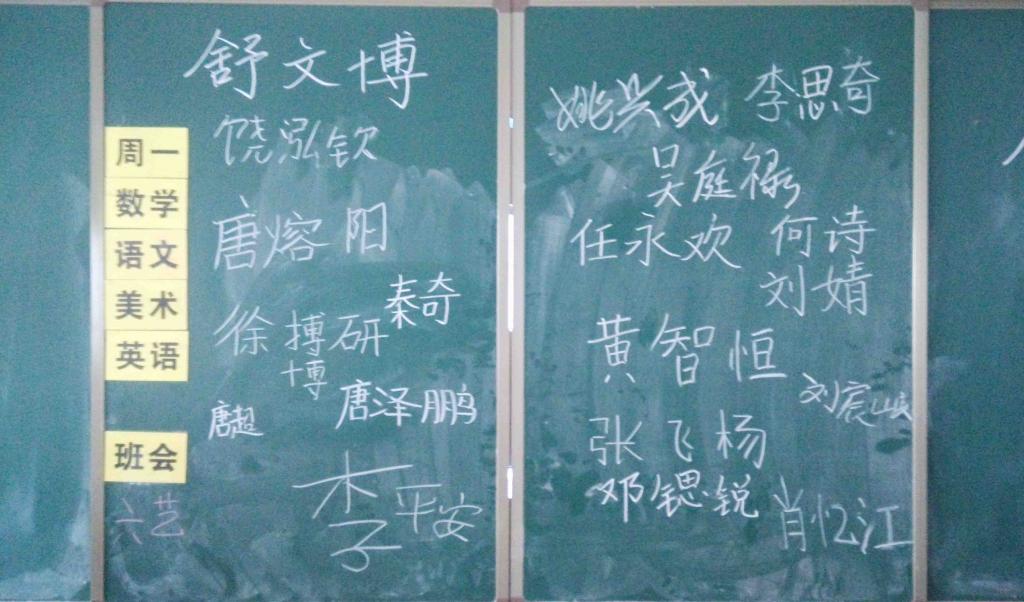 舒文博
饶泓钦
周一
数学
语文
美术
英语
班会
六艺
唐熔阳
秦奇
徐搏研
博
唐泽鹏
唐超
李平安
姚兴成
李思奇
吴庭禄
任永欢
何诗
刘婧
黄智恒
刘宸
张飞杨
邓锶锐
肖忆江